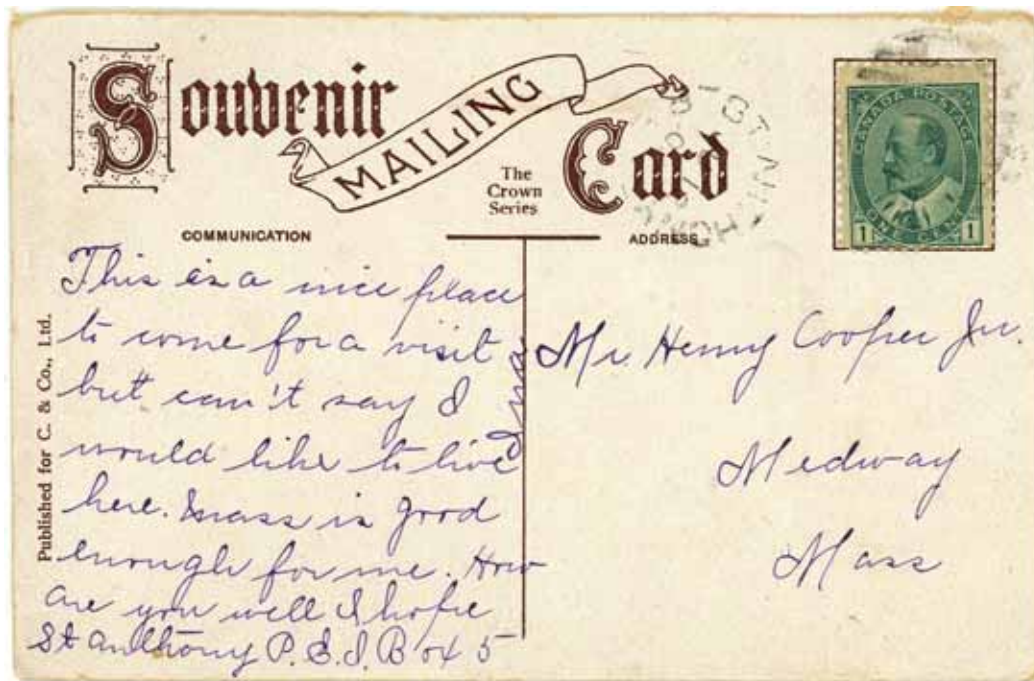 Souvenir
MAILING
Card
The
Crown
Series
CANADA POSTAGE
1 ONE CENT 1
COMMUNICATION
ADDRESS
Published for C. & Co., Ltd.
This is a nice place
to come for a visit
but can't say I
would like to live
here. Mass is good
enough for me. How
are you well I hope
St Anthony P.E.I. Box 5
Mr. Henry Cooper Jr.
Medway
Mass